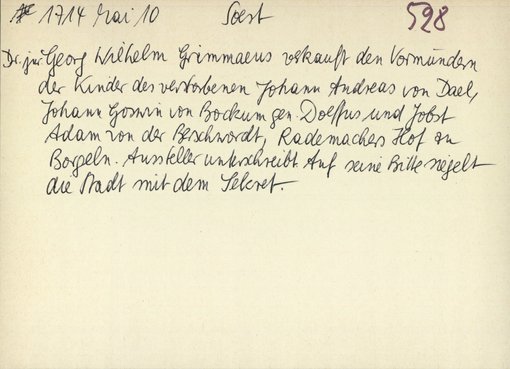 1714 Mai 10 Soest 598
Dr. jur. Georg Wilhelm Grimmaeus verkauft den Vormündern
der Kinder des verstorbenen Johann Andreas von Dael,
Johann Goswin von Bockum gen. Dolffus und Jobst
Adam von der Beschwordt, Rademachers Hof zu
Borgeln. Aussteller unterschreibt. Auf seine Bitte siegelt
die Stadt mit dem Sekret.